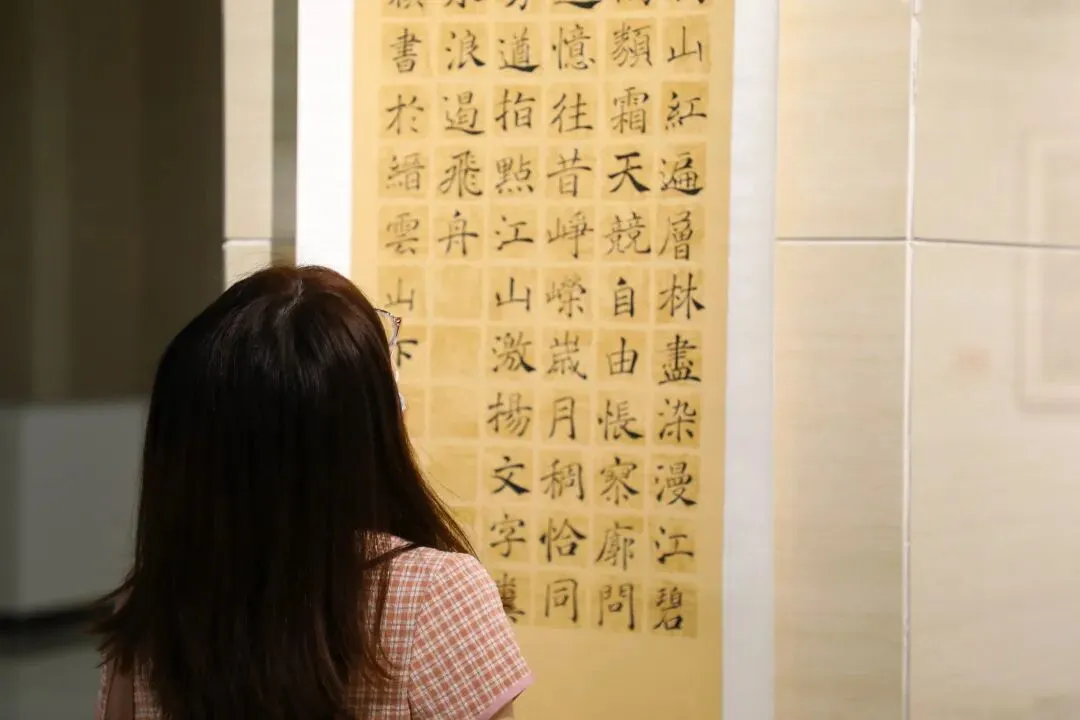 山紅遍層林盡染漫江碧
類霜天競自由悵寥廓問
憶往昔崢嶸嵗月稠恰同
遒指點江山激揚文字糞
浪遏飛舟
書於縉雲山下